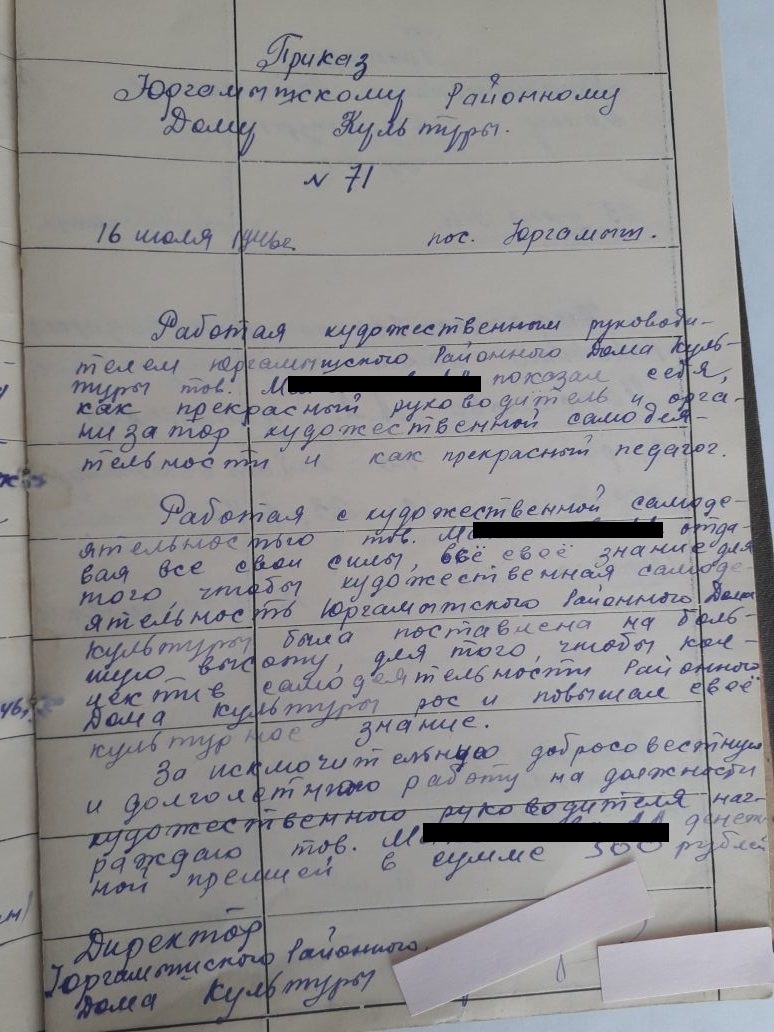 Приказ
Юргамышскому Районному
Дому Культуры.
№ 71
16 июля 1946г. пос. Юргамыш.
Работая художественным руководи-
телем Юргамышского Районного Дома Куль-
туры тов. показал себя,
как прекрасный руководитель и орга-
низатор художественной самодея-
тельности и как прекрасный педагог.
Работая с художественной самоде-
ятельностью тов. отда-
вая все свои силы, всё своё знание для
того чтобы художественная самоде-
ятельность Юргамышского Районного Дома
культуры была поставлена на боль-
шую высоту, для того, чтобы кол-
лектив самодеятельности Районного
Дома Культуры рос и повышал своё
культурное знание.
За исключительную добросовестную
и долголетнюю работу на должности
художественного руководителя наг-
раждаю тов. денеж-
ной премией в сумме 500 рублей
Директор
Юргамышского Районного
Дома Культуры